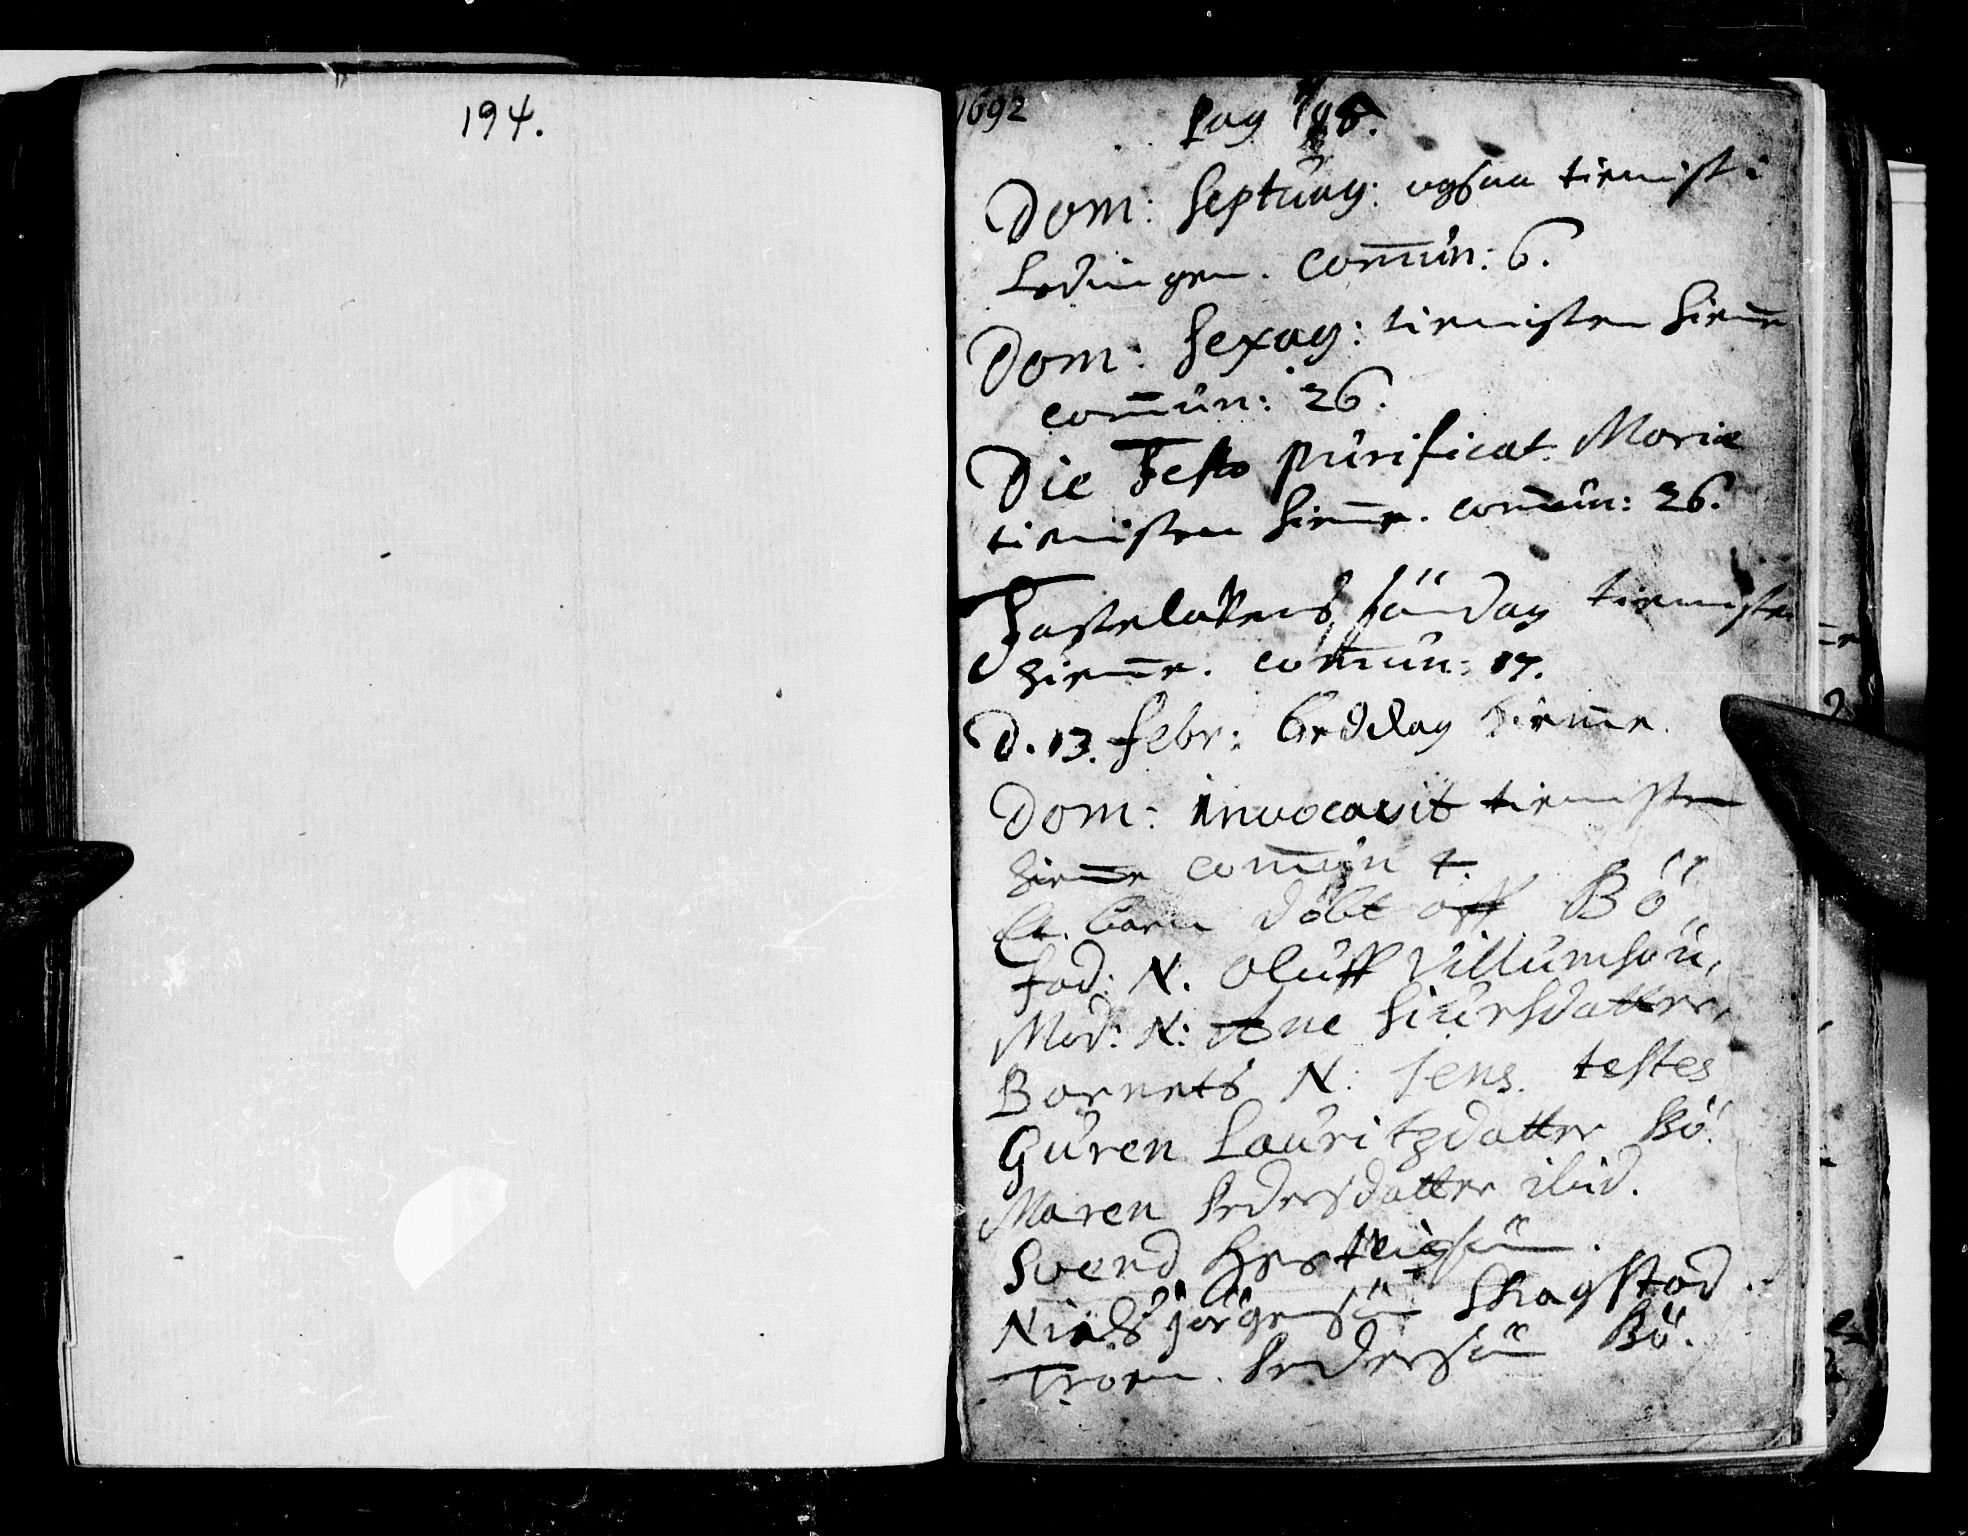 194.
1692
pag 198.
Dom: Septuag: ogsaa tienist i
Lödingen. Com̄un: 6.
Dom: Sexag: tienisten hiem̄e
com̄un: 26.
Die Festo purificat. Mariæ
tienisten hiem̄e. com̄un: 26.
Fastelavens söndag tienisten
hiem̄e. com̄un: 17.
D. 13. febr: Beddag hiem̄e.
Dom: invocavit tienisten
hiem̄e com̄un
Et barn döbt aff Bö
fad: N. Oluff Villumsön,
Mod: N: Ane Siursdatter,
Barnets N: Jens. testes
Guren Lauritzdatter Bö.
Maren Pedersdatter ibid.
Svend
Niels Jörgensön Skagstad.
Troen Pedersön Bö.